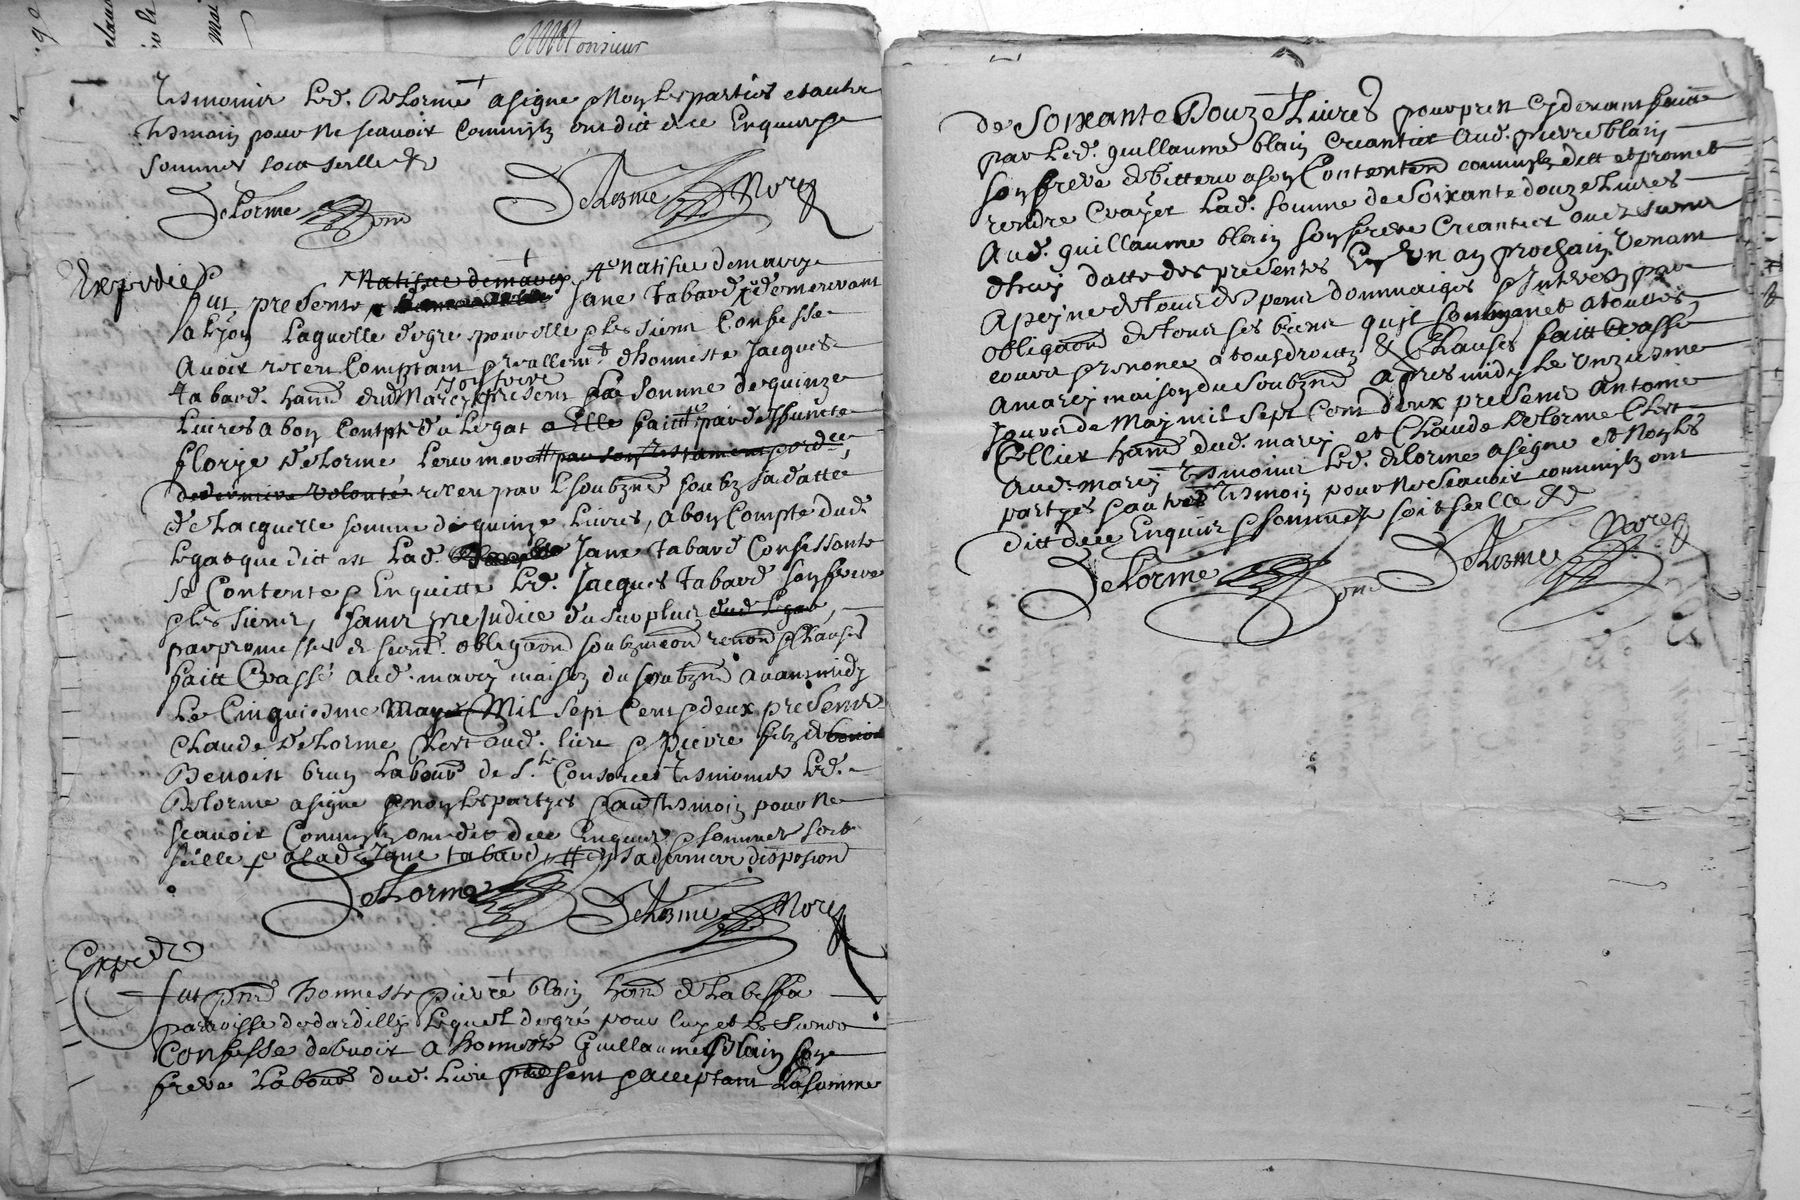 Monsieur
Tesmoins Led. Delorme a signe & Non Les parties et autre
tesmoin pour ne scavoir comm'ilz ont dict de ce Enquis &
sommes soit scelle &c
DeLorme DeLorme Nore
Expedie
Natifve de marcy
fut presente Jane tabard demeurant
a Lyon Laquelle de gre pour elle & les siens Confesse
Avoir receu Comptant & reallemt d'honneste Jacques
tabard. habt dud Marcy present son frere La somme de quinze
Livres a bon Compte du Legat a Elle faict par deffuncte
florye DeLorme Leur mere par son testament
de derniere volonté receu par Le soubzné soubz sa datte
de Lacquelle somme de quinze Livres, a bon Compte dud.
Legat que dict est Lad. Jane tabard Confessante
se Contente & Enquitte Led. Jacques tabard son frere
& les siens, sans prejudice du surplus dud Legat,
par promesses & serm. obligaõn soubzmiõn renõn & clauses
faict & passé aud. marcy maison du soubzné avant midy
Le Cinquiesme Maye Mil sept Cent & deux presents
Claude DeLorme Clerc aud. Lieu & Pierre filz de benoit
Benoist brun Laboureur de Ste Consorce tesmoins Led.
Delorme a signe & non Les partyes & aud tesmoin pour Ne
scavoir Comm'ilz ont dict de ce Enquis & sommes soit
scelle & a lad Jane tabard en sa derniere disposiõn
DeLorme DeLorme Nore
Exped
fut pnt honneste pierre blain habt de La beffa
parroisse de dardilly Lequel de gré pour luy et les siens
Confesse debvoir a honneste Guillaume Blain son
frere Laboureur dud. Lieu present & acceptant La somme
de soixante Douze Livres pour prest cy devant faict
par Led. guillaume blain creantier aud. pierre blain
son frere debitteur a son Contentemt comm'ilz dict et promet
rendre & payer Lad. somme de soixante douze Livres
Aud. guillaume blain son frere Creantier ou es siens
d'huy datte des presentes En Un an prochain Venant
A peyne de tous despens dommaiges & Interest par
obligaõn de tous ses biens qu'il soubzmet a touttes
cours & renonce a tous droictz & Clauses faict & passé
A marcy maison du soubzné Apres midy Le Unziesme
jour de May mil sept Cent deux presents Antoine
Cellier habt dud. marcy et Claude Delorme Clerc
Aud. marcy tesmoins Led. delorme a signe et Non Les
partyes & autre tesmoin pour ne scavoir comm'ilz ont
dict de ce Enquis & sommes soit scelle &c
DeLorme DeLorme Nore